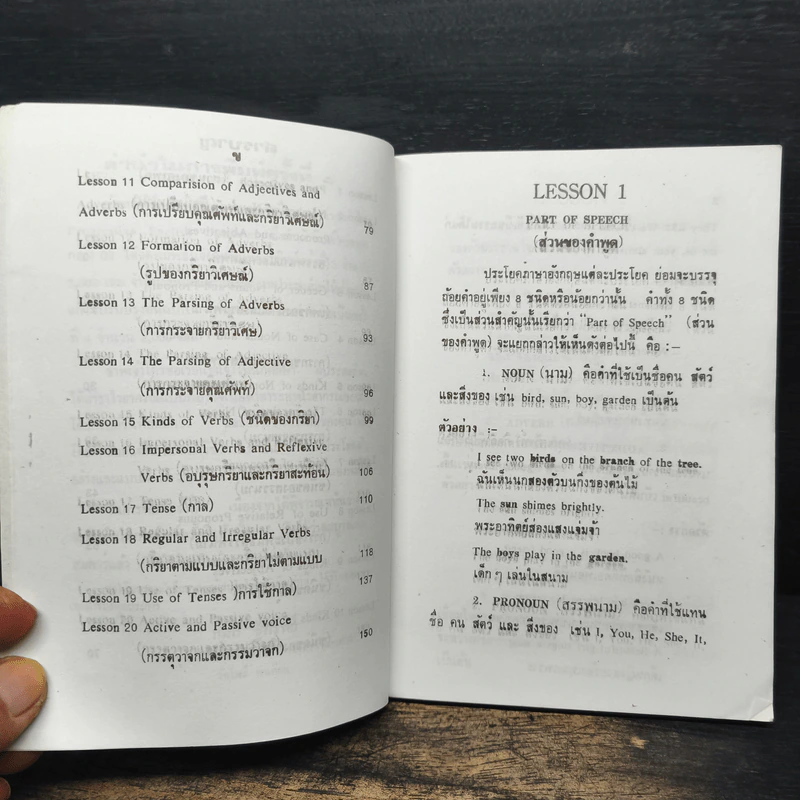 ข
Lesson 11 Comparision of Adjectives and
Adverbs (การเปรียบคุณศัพท์และกริยาวิเศษณ์) 79
Lesson 12 Formation of Adverbs
(รูปของกริยาวิเศษณ์) 87
Lesson 13 The Parsing of Adverbs
(การกระจายกริยาวิเศษ) 93
Lesson 14 The Parsing of Adjective
(การกระจายคุณศัพท์) 96
Lesson 15 Kinds of Verbs (ชนิดของกริยา) 99
Lesson 16 Impersonal Verbs and Reflexive
Verbs (อบุรุษกริยาและกริยาสะท้อน) 106
Lesson 17 Tense (กาล) 110
Lesson 18 Regular and Irregular Verbs
(กริยาตามแบบและกริยาไม่ตามแบบ 118
Lesson 19 Use of Tenses )การใช้กาล) 137
Lesson 20 Active and Passive voice
(กรรตุวาจกและกรรมวาจก) 150
LESSON 1
PART OF SPEECH
(ส่วนของคำพูด)
ประโยคภาษาอังกฤษแต่ละประโยค ย่อมจะบรรจุ
ถ้อยคำอยู่เพียง 8 ชนิดหรือน้อยกว่านั้น คำทั้ง 8 ชนิด
ซึ่งเป็นส่วนสำคัญนั้นเรียกว่า "Part of Speech" (ส่วน
ของคำพูด) จะแยกกล่าวให้เห็นดังต่อไปนี้ คือ :-
1. NOUN (นาม) คือคำที่ใช้เป็นชื่อคน สัตว์
และสิ่งของ เช่น bird, sun, boy, garden เป็นต้น
ตัวอย่าง :-
I see two birds on the branch of the tree.
ฉันเห็นนกสองตัวบนกิ่งของต้นไม้
The sun shimes brightly.
พระอาทิตย์ส่องแสงแจ่มจ้า
The boys play in the garden.
เด็ก ๆ เล่นในสนาม
2. PRONOUN (สรรพนาม) คือคำที่ใช้แทน
ชื่อ คน สัตว์ และ สิ่งของ เช่น I, You, He, She, It,